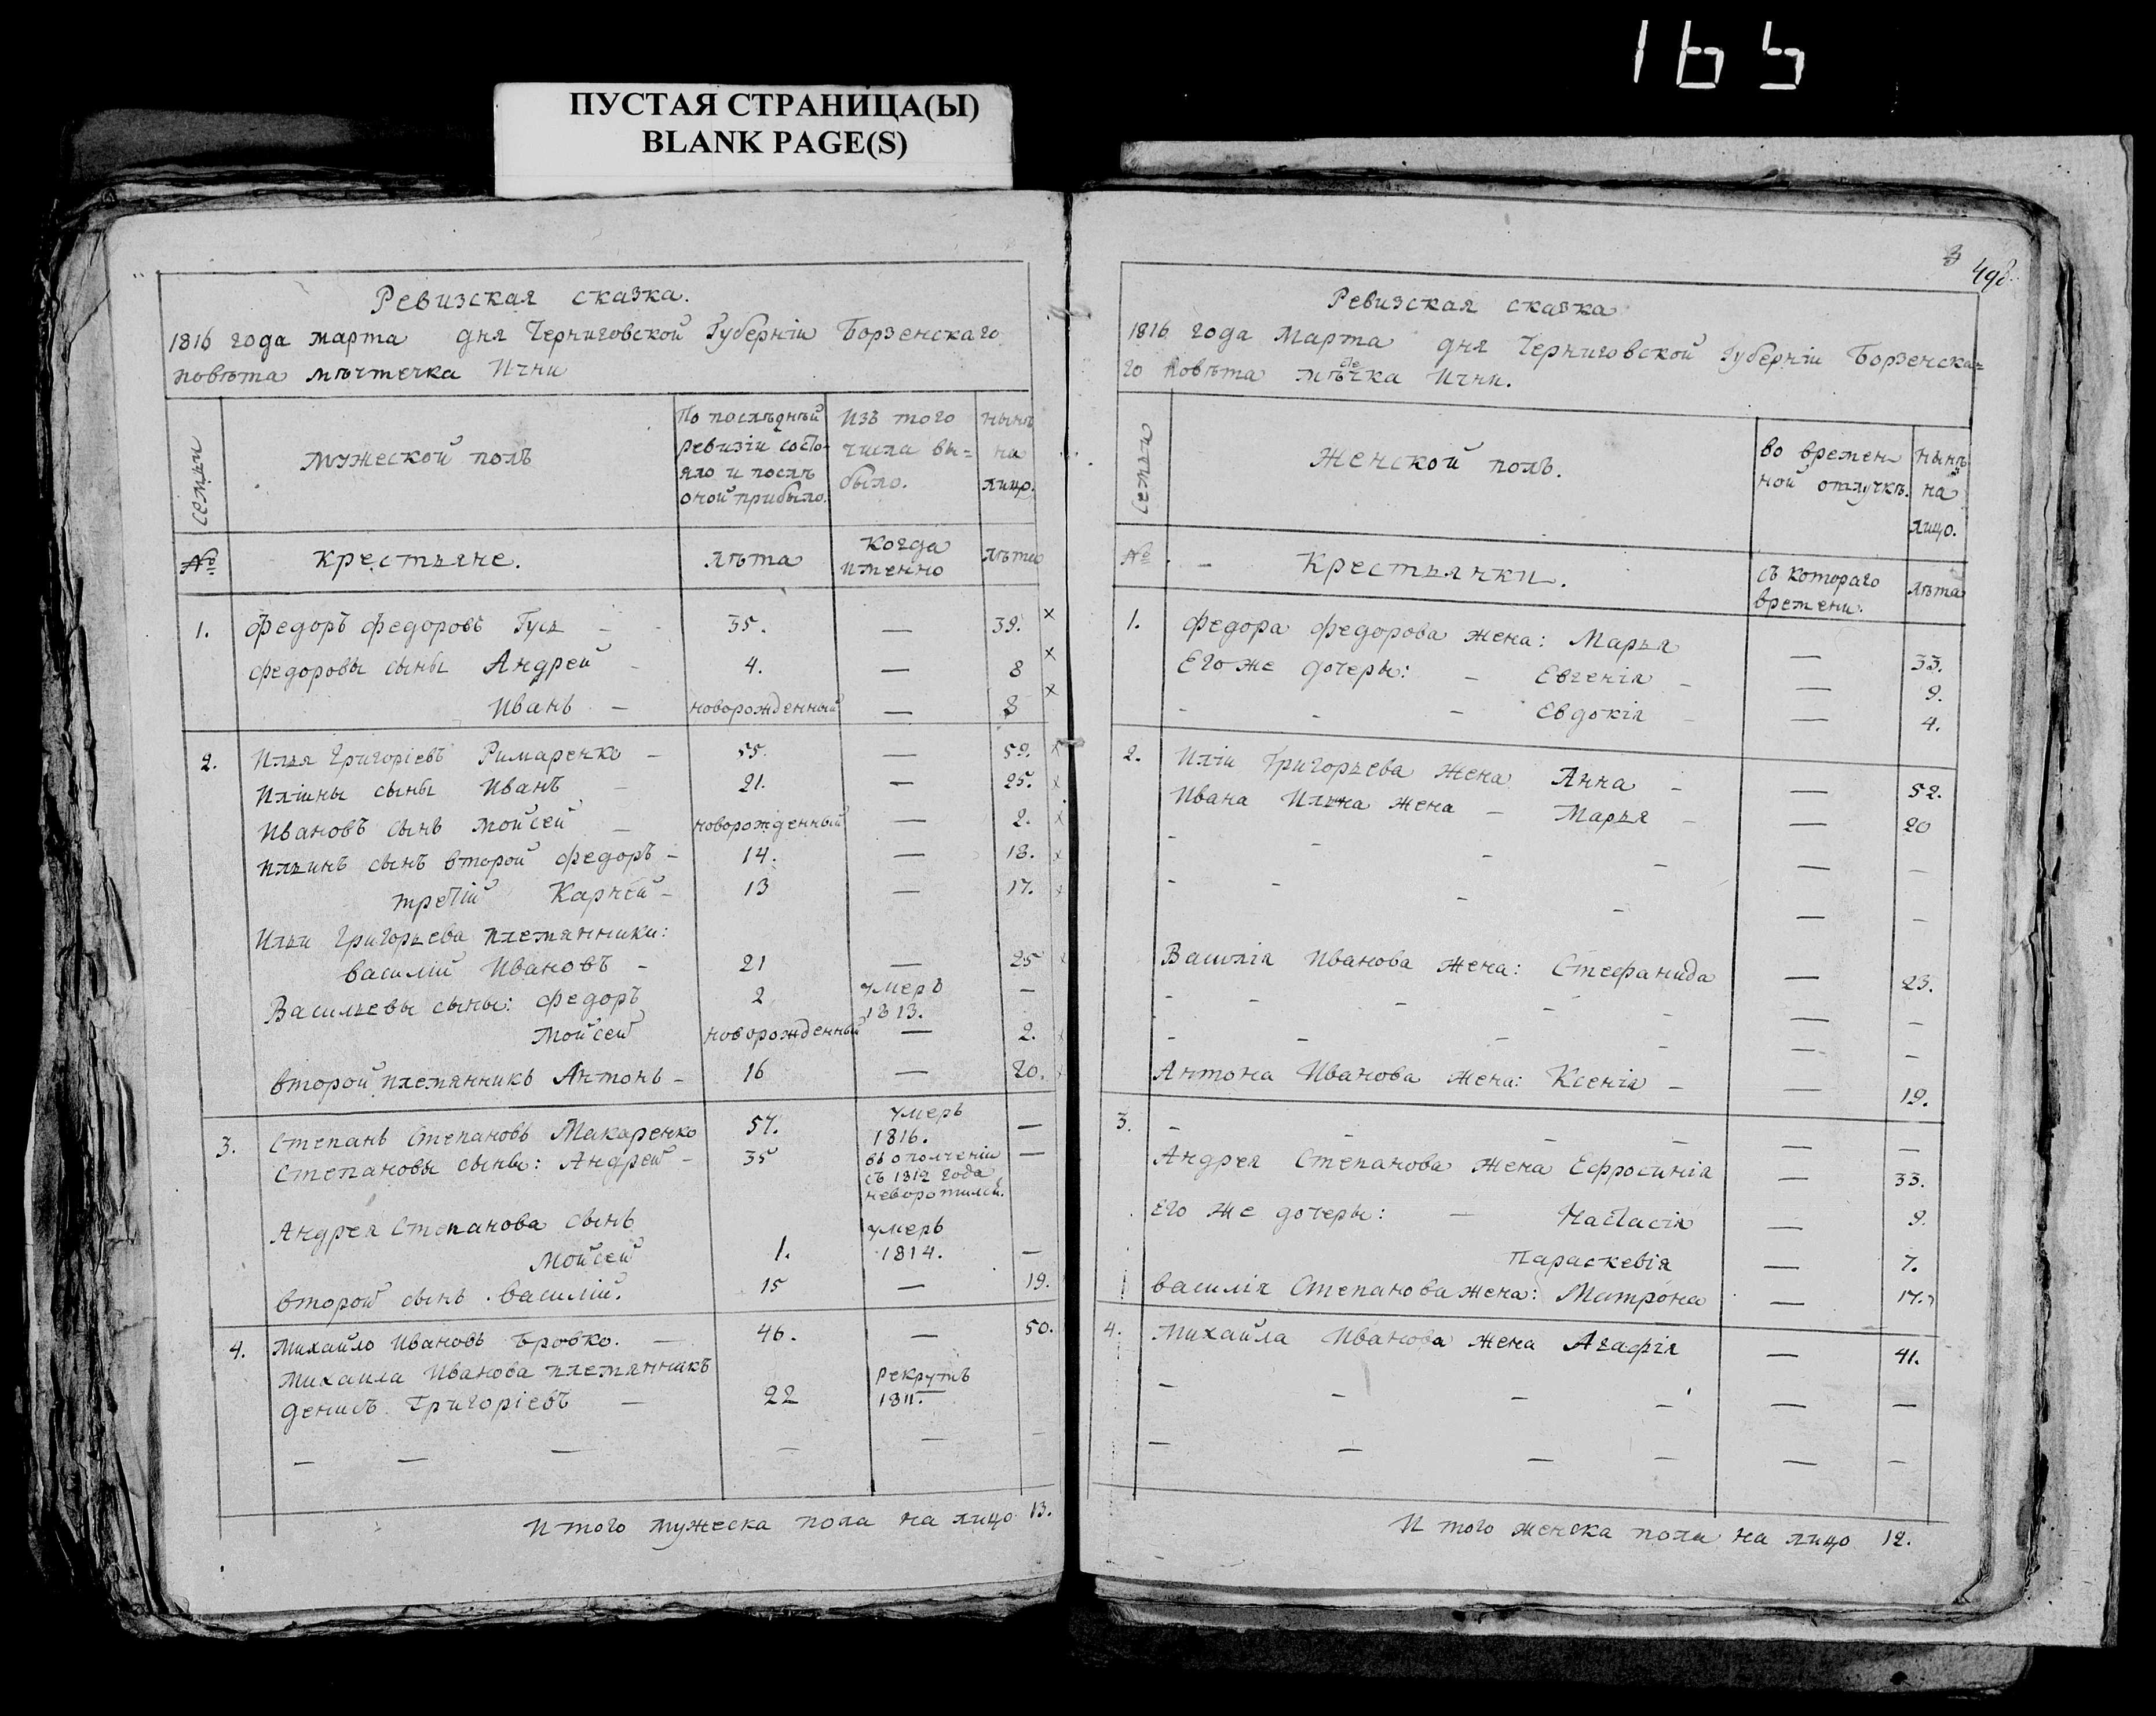 165
ПУСТАЯ СТРАНИЦА(Ы)
BLANK PAGE(S)
Ревизская сказка.
1816 года марта дня Черниговской Губерніи Борзенскаго
повѣта мѣстечка Ични
семьи
Мужеской полъ
По послѣдней
ревизіи состо-
яло и послѣ
оной прибыло.
Изъ того
числа вы=
было.
нынѣ
на
лицо.
№
Крестьяне.
лѣта
когда
именно
лѣта
1. Федоръ Федоровъ Гусь - - 35. — 39. ×
Федоровы сыны Андрей - 4. — 8 ×
Иванъ - новорожденный — 3 ×
2. Илья Григоріевъ Римаренко - 55. — 59. ×
Иліины сыны Иванъ - 21. — 25. ×
Ивановъ сынъ Мойсей - новорожденный — 2. ×
Ильинъ сынъ второй Федоръ - 14. — 18. ×
третій Карней - 13 — 17. ×
Ильи Григорьева племянники:
Василій Ивановъ - 21 — 25 ×
Васильевы сыны: Федоръ 2 умеръ —
1813.
Мойсей новорожденный — 2. ×
второй племянникъ Антонъ - 16 — 20. ×
3. Степанъ Степановъ Макаренко 57. умеръ —
1816.
Степановы сыны: Андрей - 35 въ ополченіи —
съ 1812 года
неворотился.
Андрея Степанова сынъ умеръ
Мойсей 1. 1814. —
второй сынъ Василій. 15 — 19.
4. Михайло Ивановъ Бровко. — 46. — 50.
Михаила Иванова племянникъ рекрутъ
Денисъ Григоріевъ — 22 1811.
— — — — — —
И того мужеска пола на лицо 13.
498.
Ревизская сказка
1816 года Марта дня Черниговской Губерніи Борзенска=
го Повѣта мѣстечка Ични.
семьи
Женской полъ.
во времен-
ной отлучкѣ.
нынѣ
на
лицо.
№
Крестьянки.
съ котораго
времени.
лѣта
1. Федора Федорова жена: Марья — 33.
Его же дочеры: - Евгенія - — 9.
- - - Евдокія - — 4.
2. Иліи Григорьева жена Анна - — 52.
Ивана Ильина жена - Марья - — 20
- - - - — -
- - - - — -
Василія Иванова жена: Стефанида — 23.
- - - - - — -
- - - - — -
Антона Иванова жена: Ксенія - — 19.
3. - - - - — —
Андрея Степанова жена Ефросинія — 33.
Его же дочеры: - Настасія — 9.
Параскевія — 7.
Василія Степанова жена: Матрона — 17.
4. Михайла Иванова жена Агафія — 41.
- - - - — —
- - - - — -
И того женска пола на лицо 12.